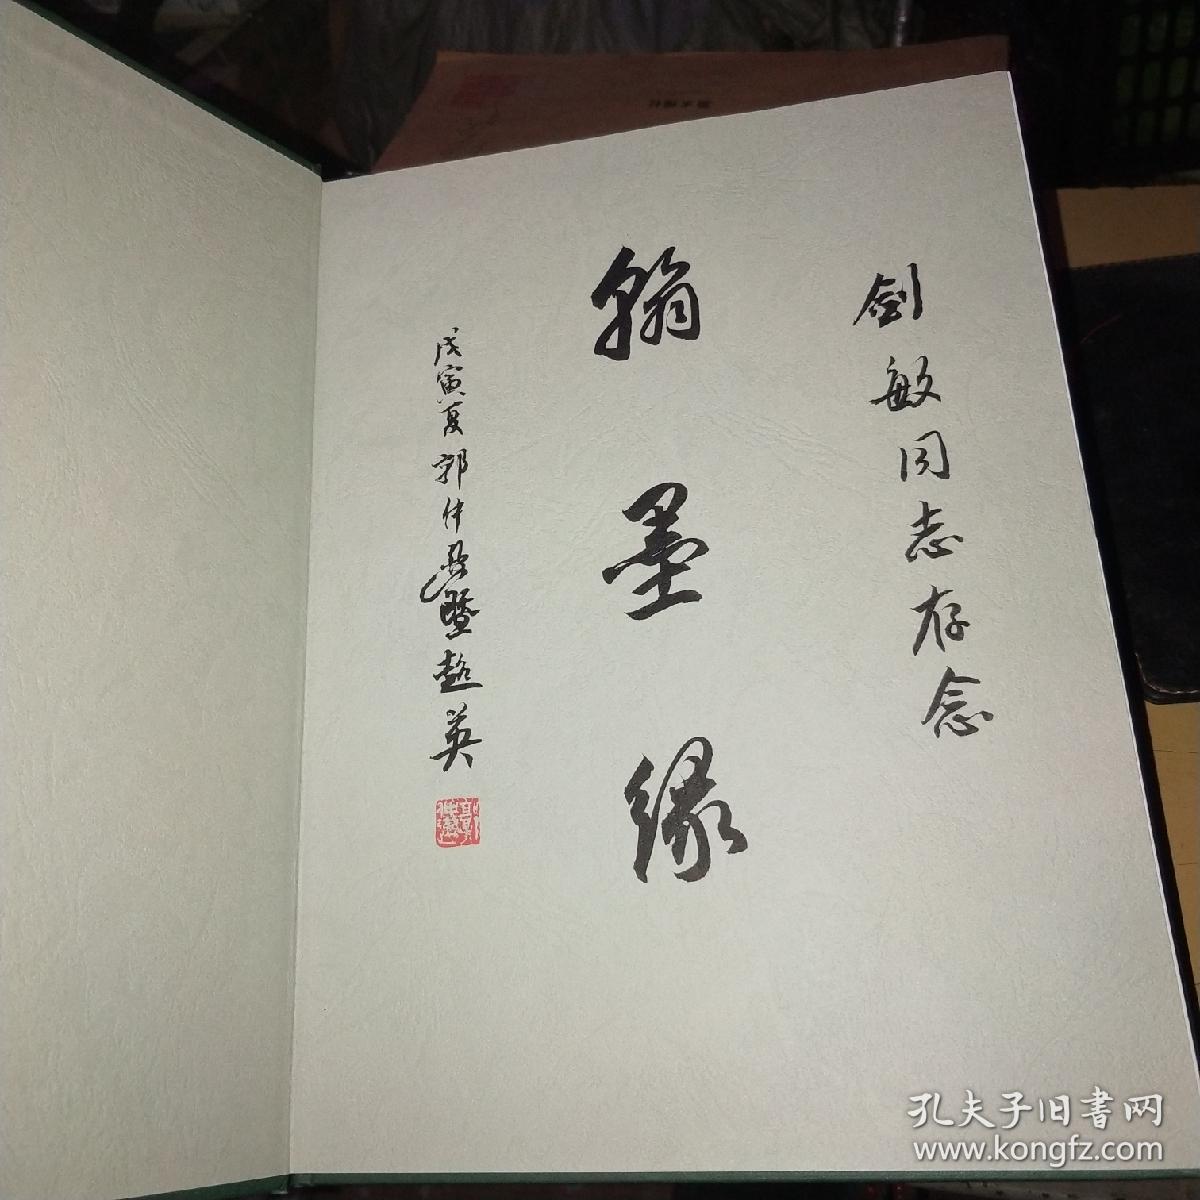 剑敏同志存念
翰墨缘
戊寅夏郭仲暨赵英
孔夫子旧书网
www.kongfz.com